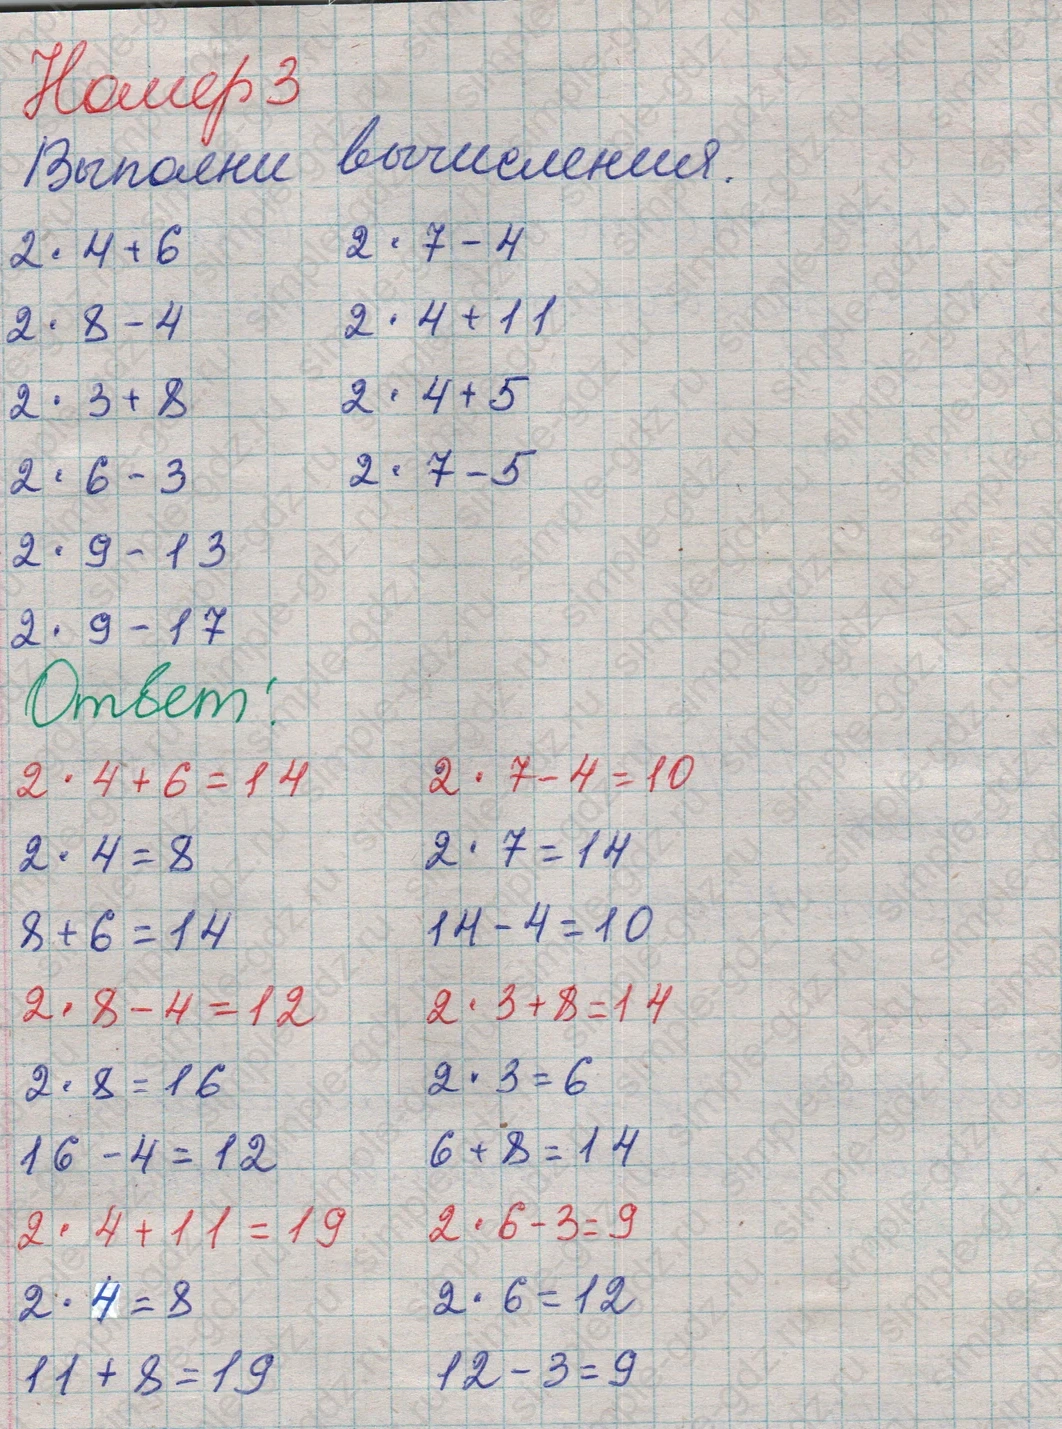 Номер 3
Выполни вычисления.
2 · 4 + 6 2 · 7 - 4
2 · 8 - 4 2 · 4 + 11
2 · 3 + 8 2 · 4 + 5
2 · 6 - 3 2 · 7 - 5
2 · 9 - 13
2 · 9 - 17
Ответ:
2 · 4 + 6 = 14 2 · 7 - 4 = 10
2 · 4 = 8 2 · 7 = 14
8 + 6 = 14 14 - 4 = 10
2 · 8 - 4 = 12 2 · 3 + 8 = 14
2 · 8 = 16 2 · 3 = 6
16 - 4 = 12 6 + 8 = 14
2 · 4 + 11 = 19 2 · 6 - 3 = 9
2 · 4 = 8 2 · 6 = 12
11 + 8 = 19 12 - 3 = 9
simple-gdz.ru